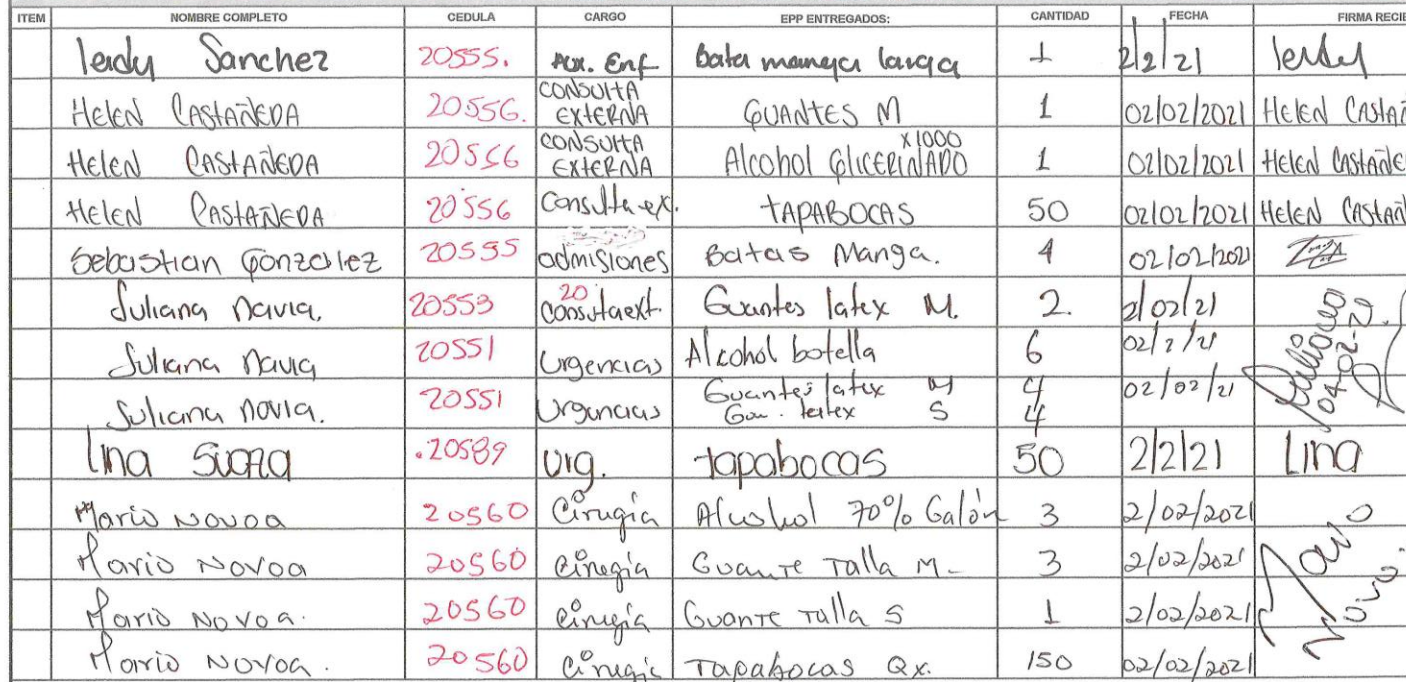 ITEM NOMBRE COMPLETO CEDULA CARGO EPP ENTREGADOS: CANTIDAD FECHA FIRMA RECIE
leidy Sanchez 20555. Aux. Enf Bata manga larga 1 2/2/21 leidy
Helen CASTAÑEDA 20556. CONSULTA EXTERNA GUANTES M 1 02/02/2021 Helen CASTAÑ
Helen CASTAÑEDA 20556 CONSULTA EXTERNA Alcohol GlICERINADO X1000 1 02/02/2021 Helen CASTAÑE
Helen CASTAÑEDA 20556 Consulta ext. TAPABOCAS 50 02/02/2021 Helen CASTAÑ
Sebastian Gonzalez 20555 admisiones Batas Manga. 4 02/02/2021
Juliana Navia. 20553 20 Consultaext. Guantes latex M. 2. 2/02/21
Juliana Navia 20551 Urgencias Alcohol botella 6 02/2/21
Juliana Navia. 20551 Urgencias Guantes latex M 4 02/02/21
Gua. latex S 4
04-02-20
Lina 20589 Urg. tapabocas 50 2/2/21 Lina
Mario Novoa 20560 Cirugía Alcohol 70% Galón 3 2/02/2021
Mario Novoa 20560 Cirugía Guante Talla M- 3 2/02/2021
Mario Novoa. 20560 Cirugía Guante Talla S 1 2/02/2021
Mario Novoa. 20560 Cirugía Tapabocas Qx. 150 02/02/2021
Mario Novoa.